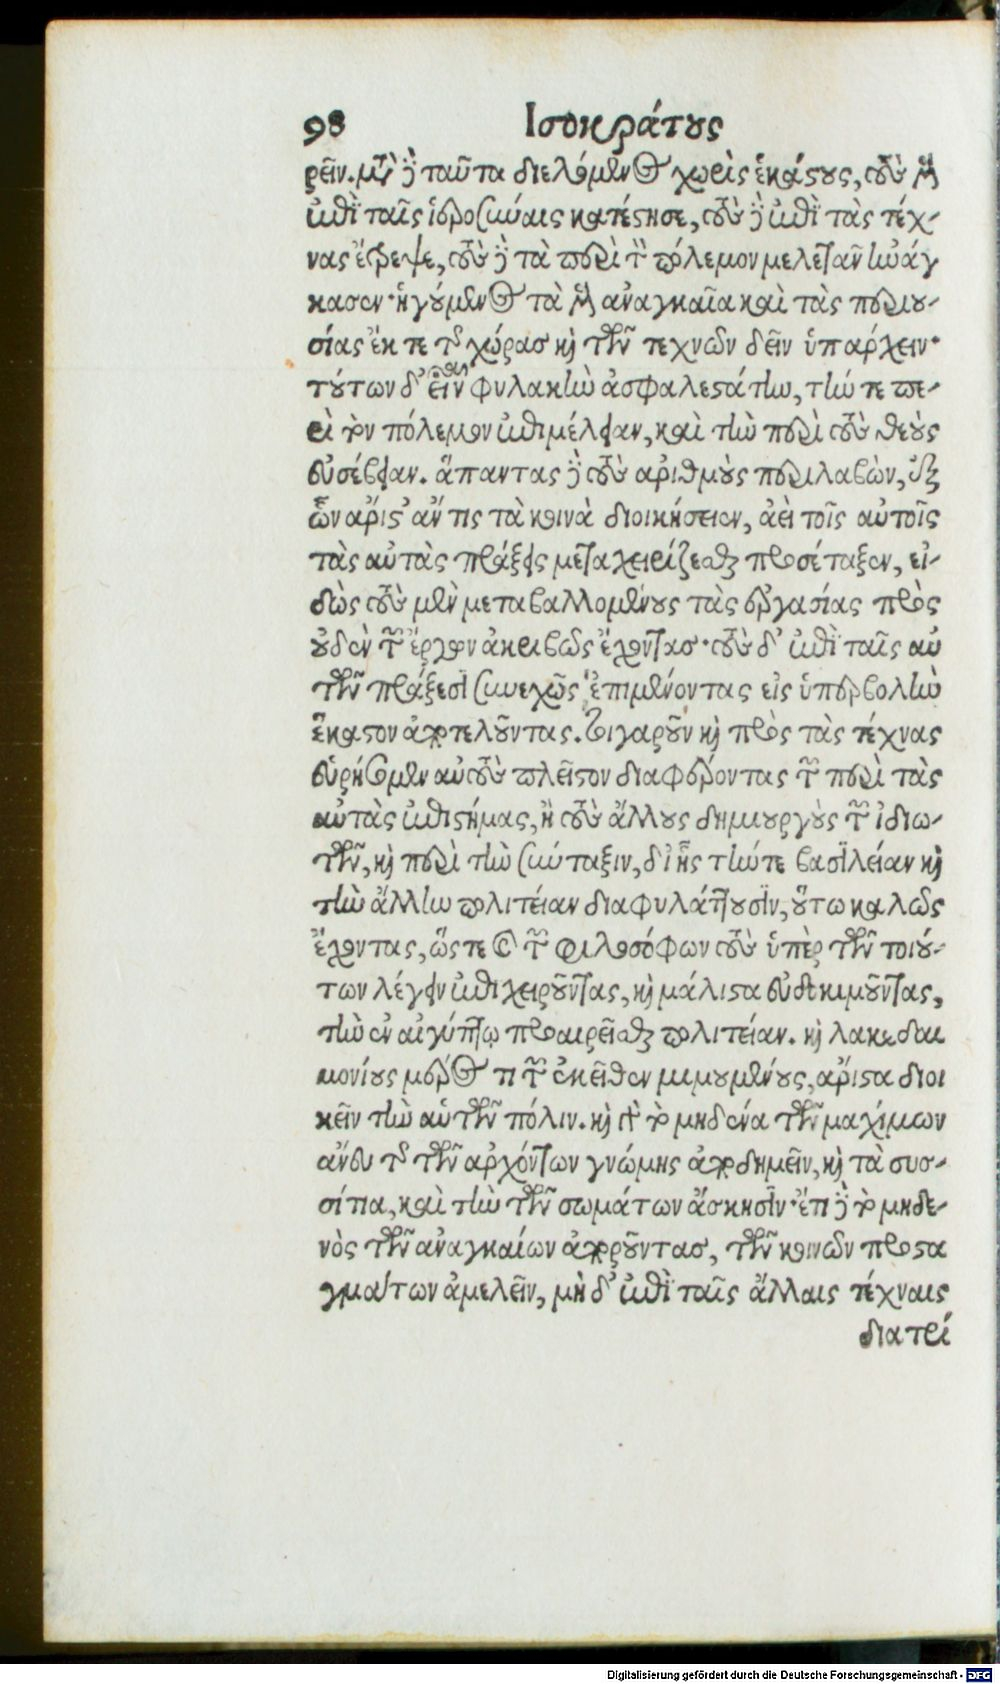 98 Ισοκράτους
ρεῖν. μετὰ δὲ ταῦτα διελόμενος χωρὶς ἑκάστους, τοὺς μὲν
ἐπὶ ταῖς ἱεροσύναις κατέστησε, τοὺς δὲ ἐπὶ τὰς τέχ-
νας ἔτρεψε, τοὺς δὲ τὰ περὶ τὸν πόλεμον μελετᾶν ἠνάγ
κασεν· ἡγούμενος τὰ μὲν ἀναγκαῖα καὶ τὰς περιου-
σίας ἔκ τε τῆς χώρας καὶ τῶν τεχνῶν δεῖν ὑπάρχειν·
τούτων δ' εἶναι φυλακὴν ἀσφαλεστάτην, τήν τε πε-
ρὶ τὸν πόλεμον ἐπιμέλειαν, καὶ τὴν περὶ τοὺς θεοὺς
εὐσέβειαν. ἅπαντας δὲ τοὺς ἀριθμοὺς περιλαβὼν, ἐξ
ὧν ἄριστ' ἄν τις τὰ κοινὰ διοικήσειεν, ἀεὶ τοῖς αὐτοῖς
τὰς αὐτὰς πράξεις μεταχειρίζεσθαι προσέταξεν, εἰ-
δὼς τοὺς μὲν μεταβαλλομένους τὰς ἐργασίας πρὸς
οὐδὲν τῶν ἔργων ἀκριβῶς ἔχοντας· τοὺς δ' ἐπὶ ταῖς αὐ
τῶν πράξεσι συνεχῶς ἐπιμένοντας εἰς ὑπερβολὴν
ἕκαστον ἀποτελοῦντας. Τοιγαροῦν καὶ πρὸς τὰς τέχνας
εὑρήσομεν αὐτοὺς πλεῖστον διαφέροντας τῶν περὶ τὰς
αὐτὰς ἐπιστήμας, ἢ τοὺς ἄλλους δημιουργοὺς τῶν ἰδιω-
τῶν, καὶ περὶ τὴν σύνταξιν, δι' ἧς τήν τε βασιλείαν καὶ
τὴν ἄλλην πολιτείαν διαφυλάττουσιν, οὕτω καλῶς
ἔχοντας, ὥστε καὶ τῶν φιλοσόφων τοὺς ὑπὲρ τῶν τοιού-
των λέγειν ἐπιχειροῦντας, καὶ μάλιστα εὐδοκιμοῦντας,
τὴν ἐν αἰγύπτῳ προαιρεῖσθαι πολιτείαν. καὶ λακεδαι
μονίους μέρος τι τῶν ἐκεῖθεν μιμουμένους, ἄριστα διοι
κεῖν τὴν αὑτῶν πόλιν. καὶ γὰρ τὸ μηδένα τῶν μαχίμων
ἄνευ τῆς τῶν ἀρχόντων γνώμης ἀποδημεῖν, καὶ τὰ συσ-
σίτια, καὶ τὴν τῶν σωμάτων ἄσκησιν· ἔτι δὲ τὸ μηδε-
νὸς τῶν ἀναγκαίων ἀποροῦντας, τῶν κοινῶν προστα
γμάτων ἀμελεῖν, μηδ' ἐπὶ ταῖς ἄλλαις τέχναις
διατρί
Digitalisierung gefördert durch die Deutsche Forschungsgemeinschaft - DFG